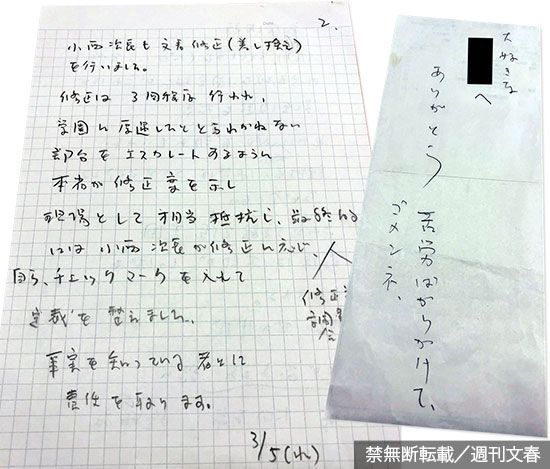 2.
小西次長も文書修正(差し換え)
を行いました。
修正は3回程度行われ、
学園に厚遇したととられかねない
部分をエスカレートするように
本省が修正案を示し
現場として相当抵抗し、最終的
には小西次長が修正に応じ、
自ら、チェックマークを入れて
裁を整えました。
修正
学園
事実を知っている者として
責任を取ります。
3/5
大好きな
へ
ありがとう 苦労ばかりかけて、
ゴメンネ、
禁無断転載／週刊文春